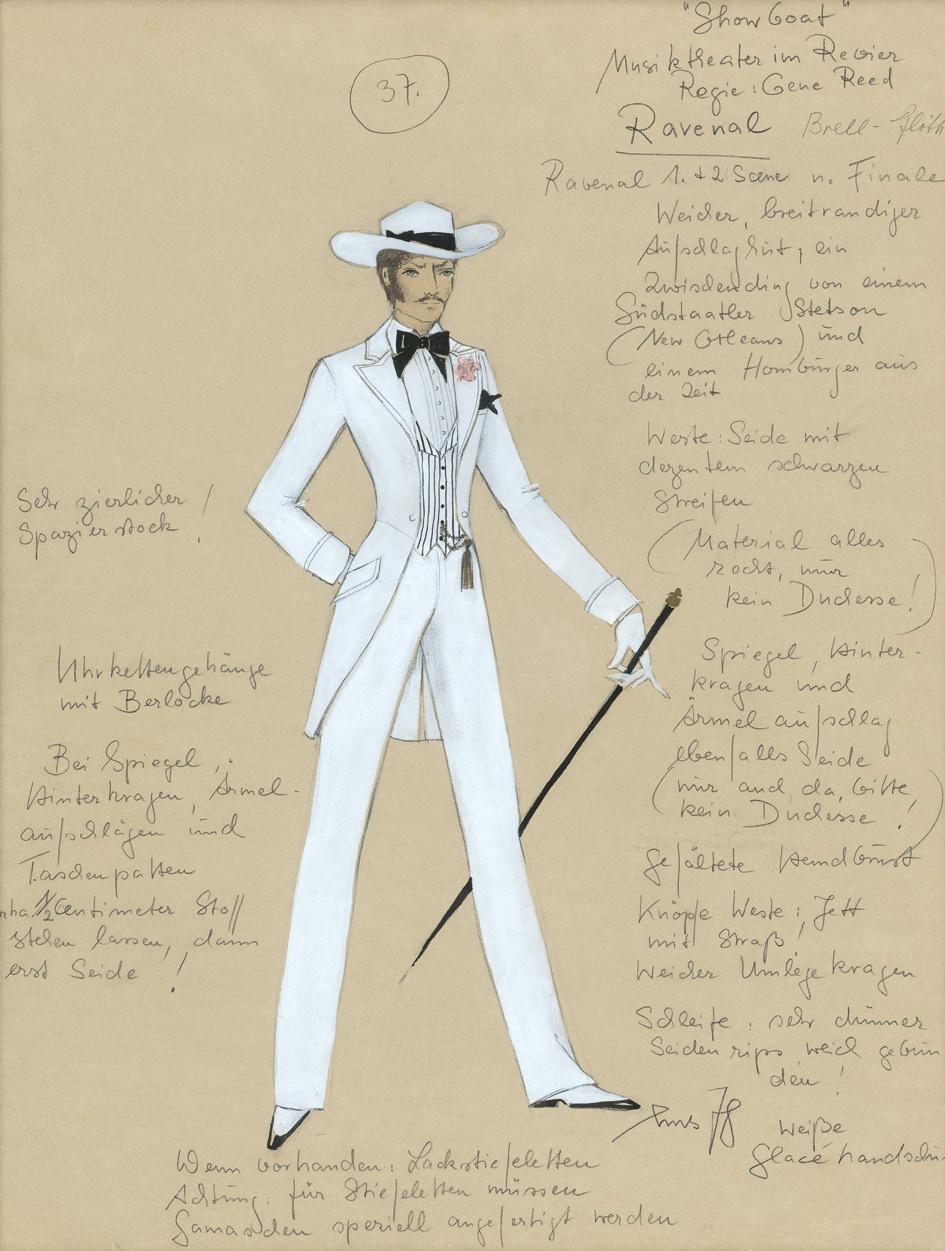 37.
"Show Boat"
Musiktheater im Revier
Regie: Gene Reed
Ravenal Brell-
Ravenal 1. + 2 Scene u. Finale
Weicher, breitrandiger
Aufschlaghut; ein
Zwischending von einem
Südstaatler Stetson
(New Orleans) und
einem Homburger aus
der Zeit
Weste: Seide mit
dezentem schwarzen
Streifen
(Material alles
recht, nur
kein Duchesse!)
Spiegel, Hinter-
kragen und
Ärmelaufschlag
ebenfalls Seide
(nur auch da, bitte,
kein Duchesse!)
Gefältete Hemdbrust
Knöpfe Weste: Jett
mit Straß!
Weicher Umlegekragen
Schleife: sehr dünner
Seidenrips weich gebun
den!
78
weiße
Glacéhandschu
Sehr zierlicher
Spazierstock!
Uhrkettengehänge
mit Berlocke
Bei Spiegel,
Hinterkragen, Ärmel-
aufschlägen und
Taschenpatten
1/2 Centimeter Stoff
stehen lassen, dann
erst Seide!
Wenn vorhanden: Lackstiefeletten
Achtung: für Stiefeletten müssen
Gamaschen speziell angefertigt werden